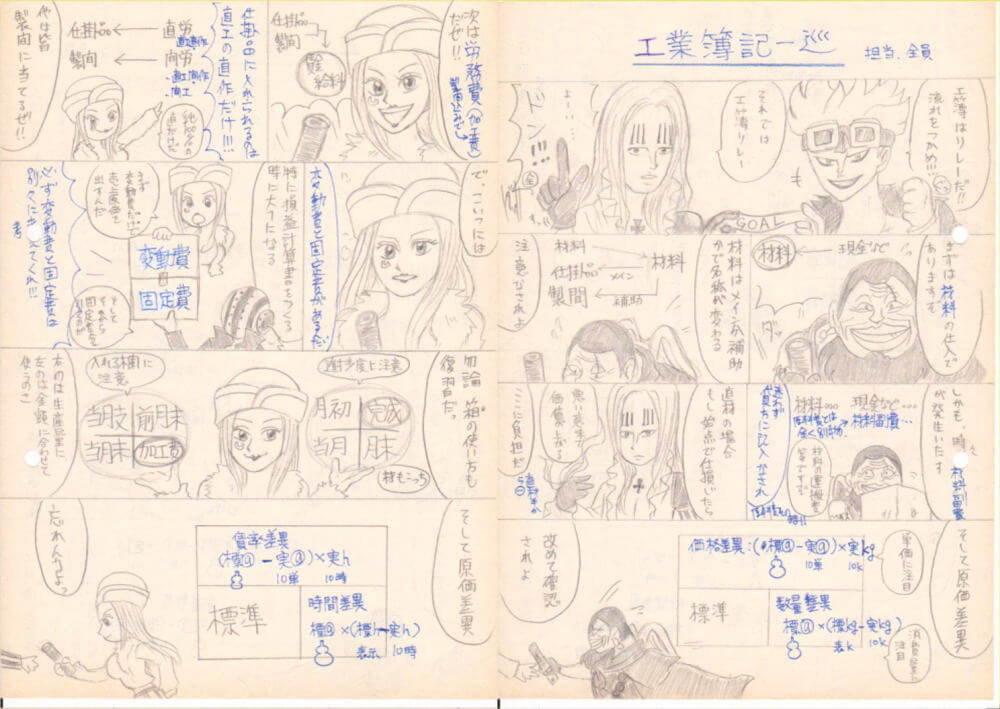 工業簿記一巡
担当、全員
工簿はリレーだ!!
流れをつかめ!!!
それでは
工簿リレー
よー…
ドン!!!
全
GOAL
まずは材料の仕入で
ありますぞ
材料 ← 現金など
材料はメインか補助
かで名称が変わる
材料
仕掛品
製間
材料
メイン
補助
注意なされよ
しかも、時々
材料副費
が発生いたす
材料… 現金など…
材料副費…
材料の運搬費
等ですぞ
迷わず
借方に記入なされ
直材の場合
もし始点で仕損じたら
悪い奴まで
価値上がる
ここに負担だ
そして原価差異
単価に注目
価格差異:(標@-実@)×実kg
10単 10k
標準
数量差異
標@×(標kg-実kg)
表k 10k
消費量に
注目
改めて確認
されよ
次は労務費(加工費)
だぜ!!
製間込みだぜ
仕掛品
製間
賃金
給料
仕掛品に入れられるのは
直工の直作だけ!!!
仕掛品 ← 直労
直工直作
製間 ← 間労
直工間作
間工
純100%の
直だけだ
他は皆
製間に当てるぜ!!
で、こいつには
変動費と固定費があるだ
特に損益計算書をつくる
時に大事になる
まず
変動費だけで
売上原価を
出すんだ
変動費
固定費
そして
そこから
固定費を
引くのさ
必ず変動費と固定費は
別々に考えてくれ!!!
勿論、箱の使い方も
復習だっ
進捗度に注意
月初 完成
当月 月末
材もこっち
入れる欄に
注意
当月支 前月末
当月末 加工費
右のは生産量に、
左のは金額に合わせて
使うのさ
そして原価差異
賃率差異
(標@-実@)×実h
10単 10時
標準
時間差異
標@×(標h-実h)
表示 10時
忘れんなよっ